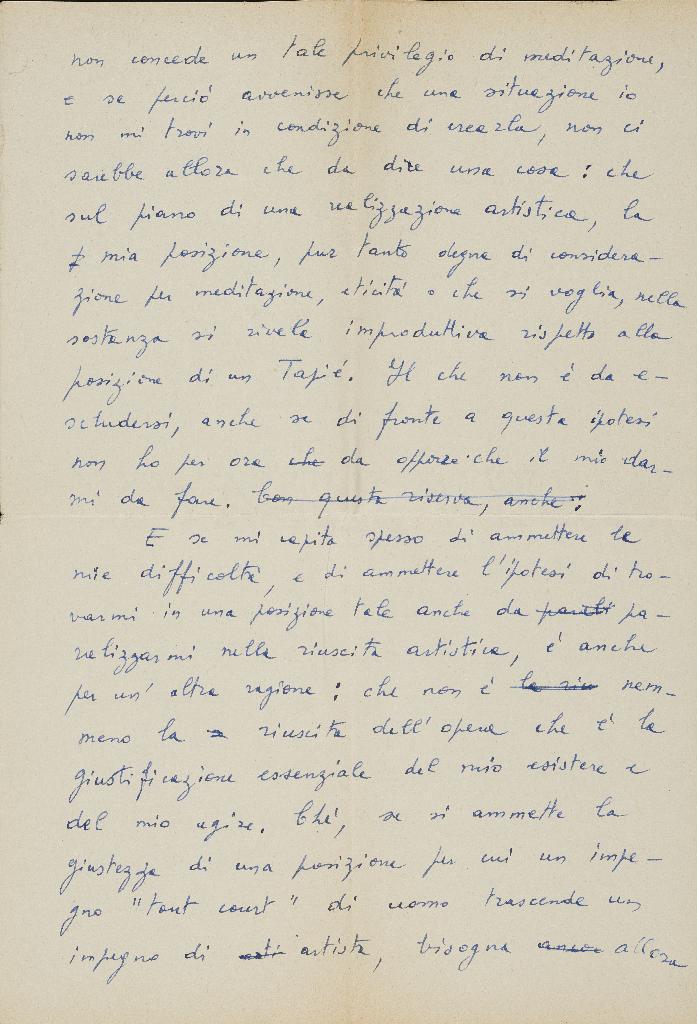 non concede un tale privilegio di meditazione,
e se perciò avvenisse che una situazione io
non mi trovi in condizione di crearla, non ci
sarebbe allora che da dire una cosa: che
sul piano di una realizzazione artistica, la
mia posizione, pur tanto degna di considera-
zione per meditazione, eticità o che si voglia, nella
sostanza si rivela improduttiva rispetto alla
posizione di un Tapié. Il che non è da e-
scludersi, anche se di fronte a questa ipotesi
non ho per ora che da opporre che il mio dar-
mi da fare. Con questa riserva, anche:
E se mi capita spesso di ammettere le
mie difficoltà, e di ammettere l'ipotesi di tro-
varmi in una posizione tale anche da parali pa-
ralizzarmi nella riuscita artistica, è anche
per un' altra ragione: che non è la riu nem-
meno la riuscita dell'opera che è la
giustificazione essenziale del mio esistere e
del mio agire. Chè, se si ammette la
giustezza di una posizione per cui un impe-
gno "tout court" di uomo trascende un
impegno di arti artista, bisogna ancor allora